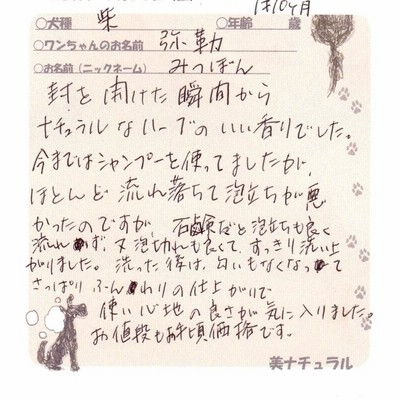 1才10ヶ月
○犬種 柴 ○年齢 歳
○ワンちゃんのお名前 弥勒
○お名前(ニックネーム) みつぼん
封を開けた瞬間から
ナチュラルなハーブのいい香りでした。
今まではシャンプーを使ってましたが、
ほとんど流れ落ちて泡立ちが悪
かったのですが、石鹸だと泡立ちも良く
流れず、又泡切れも良くて、すっきり洗い上
がりました。洗った後は、匂いもなくなって
さっぱりふんわりの仕上がりで
使い心地の良さが気に入りました。
お値段もお手頃価格です。
美ナチュラル